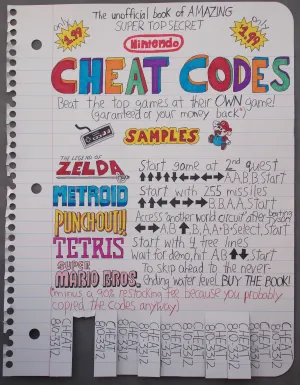 The unofficial book of AMAZING
SUPER TOP SECRET
only 1.99
Nintendo
only 1.99
CHEAT CODES
Beat the top games at their OWN game!
(garanteed or your money back*)
SAMPLES
THE LEGEND OF
ZELDA Start game at 2nd quest
A,B,B,Start
METROID Start with 255 missiles
B,B,A,A,Start
PUNCHOUT!! Access another world circuit after beating tyson
↔,A,B ↑ B,A,A+B+Select,Start
TETRIS Start with 4 free lines
Wait for demo, hit A,B ↑↓ Start
SUPER
MARIO BROS. To skip ahead to the never
Ending water level, BUY THE BOOK!
(*minus a 90% restocking fee because you probably
copied the codes anyway)
CHEAT
CHEAT
CHEAT
CHEAT
CHEAT
CHEAT
CHEAT